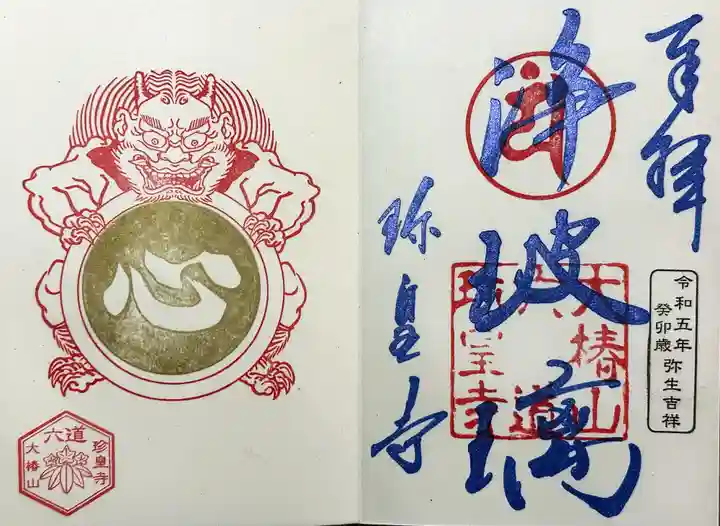 奉拝
令和五年
癸卯歳 弥生吉祥
浄玻璃
大椿山
六道
珍皇寺
珍皇寺
心
六道
珍皇寺
大椿山